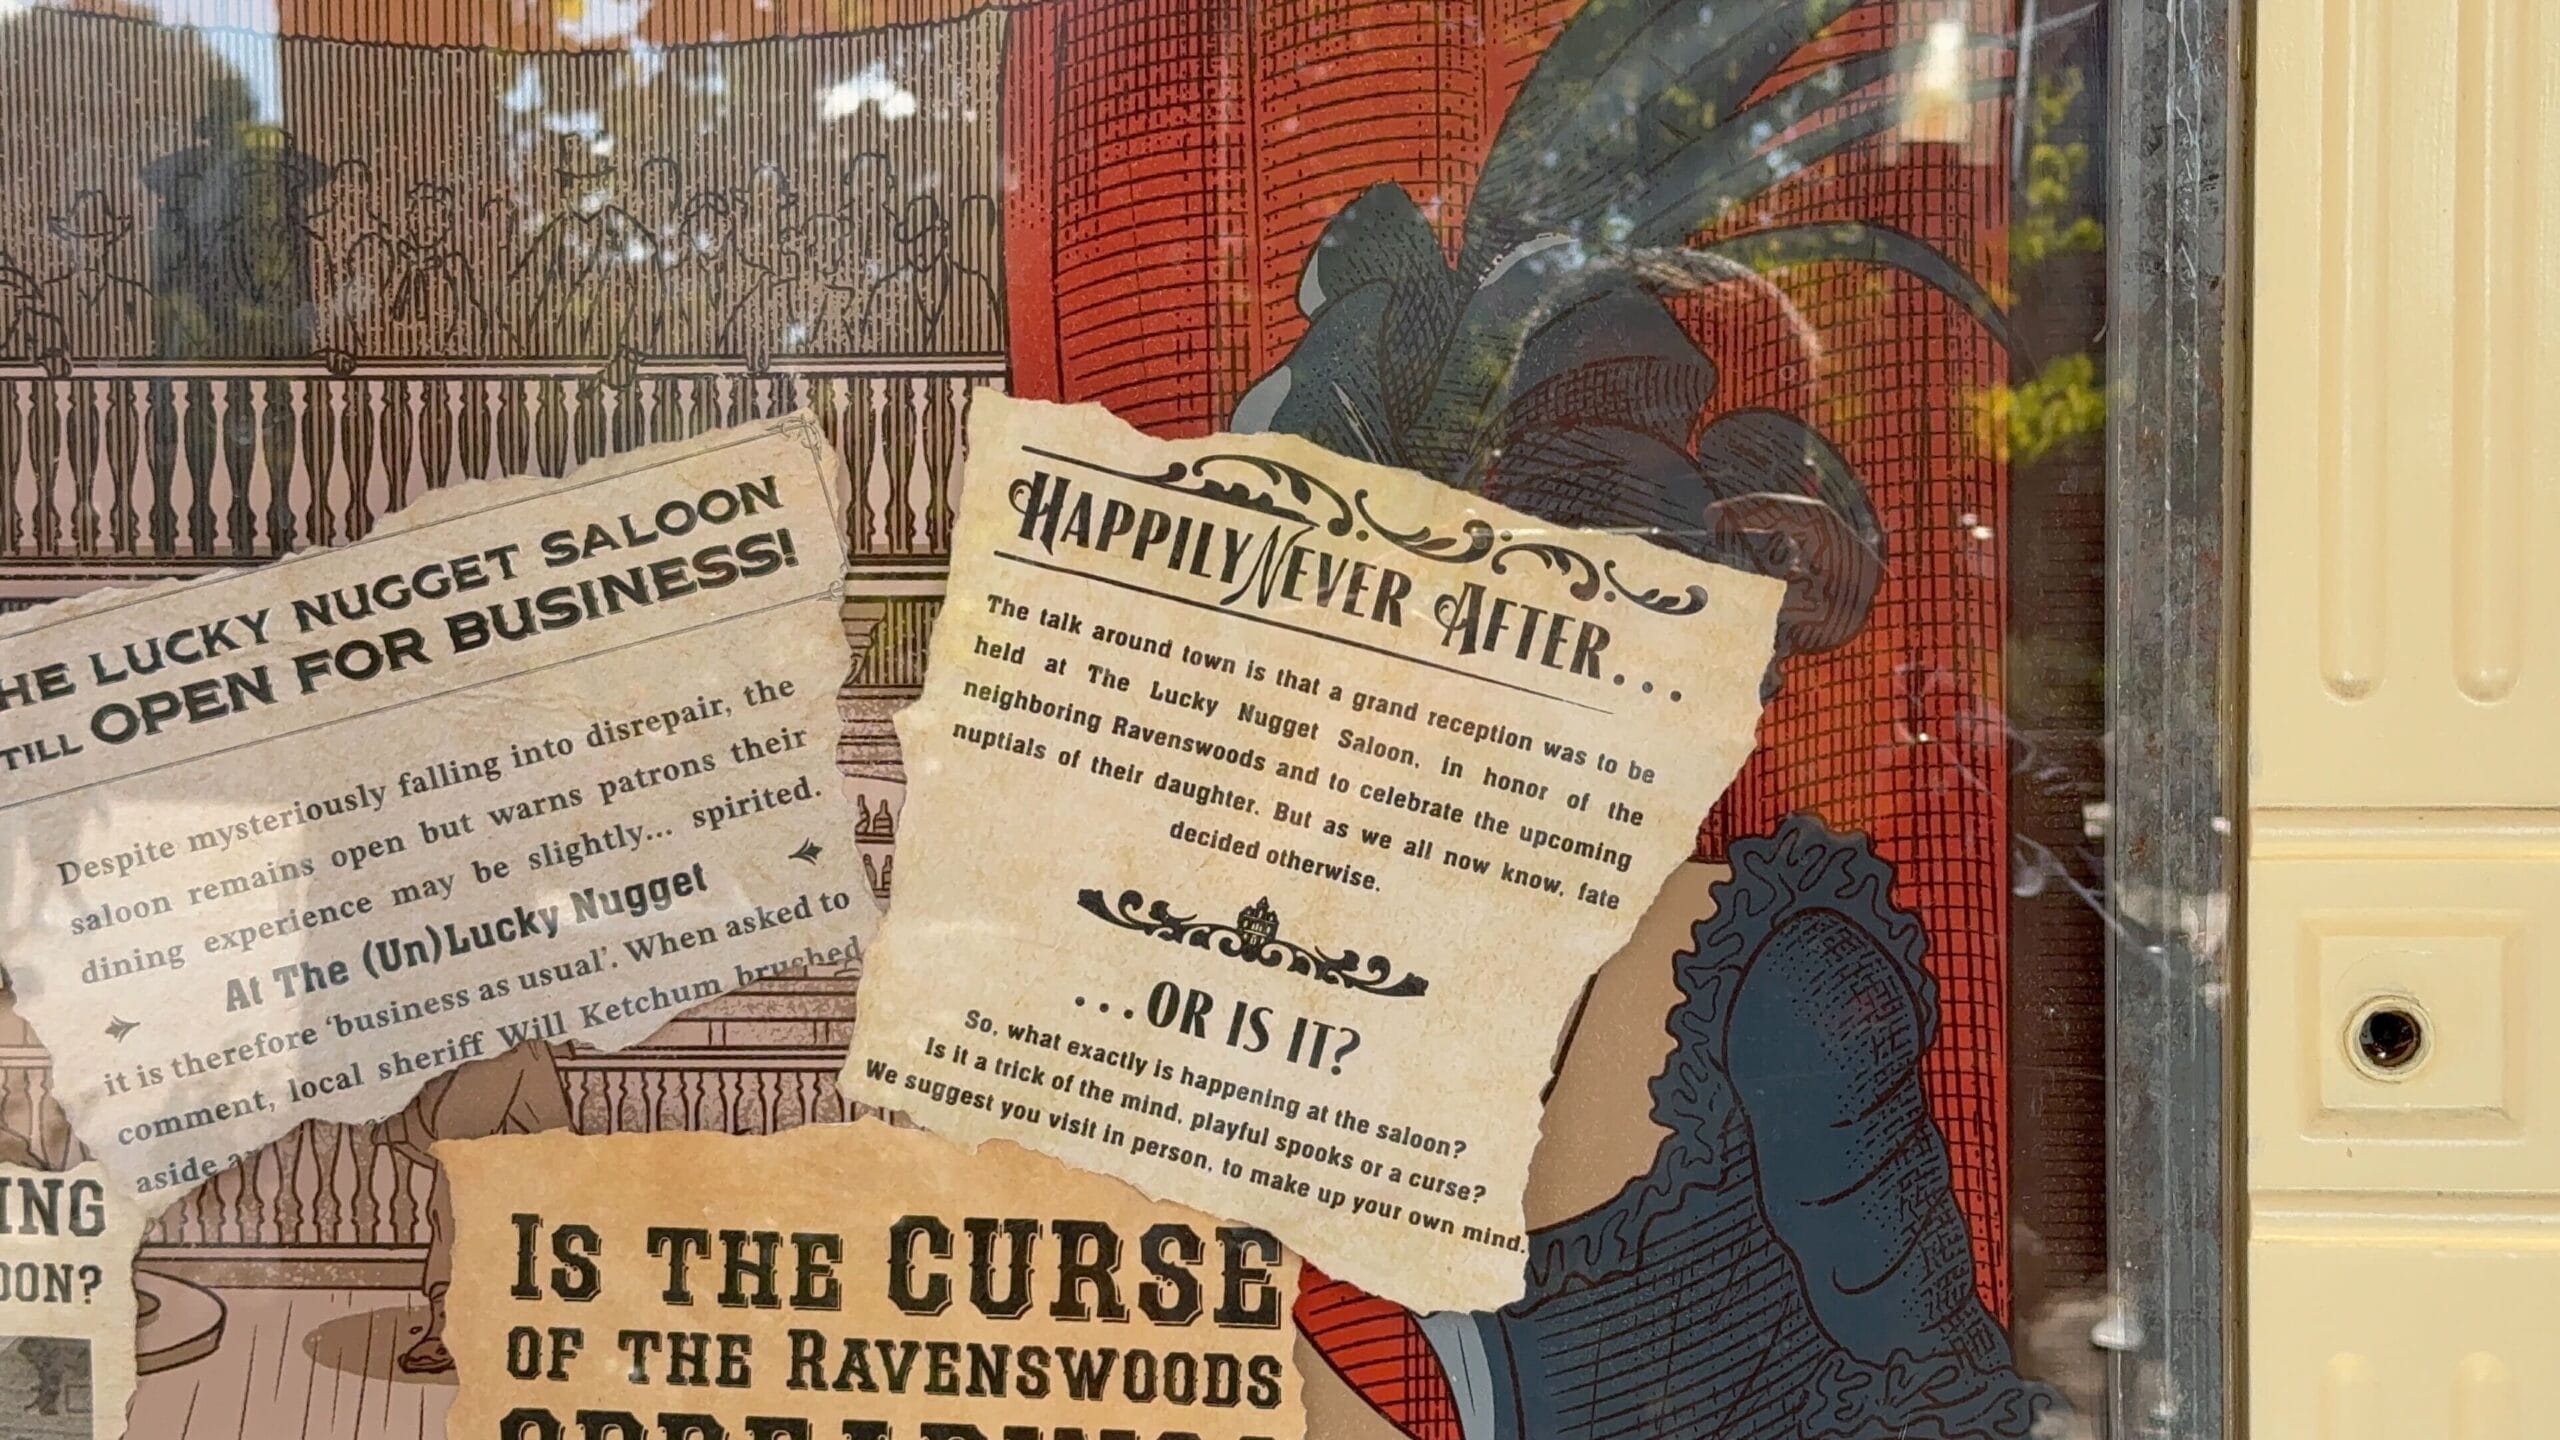 HE LUCKY NUGGET SALOON
TILL OPEN FOR BUSINESS!
Despite mysteriously falling into disrepair, the
saloon remains open but warns patrons their
dining experience may be slightly... spirited.
At The (Un)Lucky Nugget
it is therefore ‘business as usual’. When asked to
comment, local sheriff Will Ketchum brushed
aside
HAPPILY NEVER AFTER...
The talk around town is that a grand reception was to be
held at The Lucky Nugget Saloon, in honor of the
neighboring Ravenswoods and to celebrate the upcoming
nuptials of their daughter. But as we all now know, fate
decided otherwise.
...OR IS IT?
So, what exactly is happening at the saloon?
Is it a trick of the mind, playful spooks or a curse?
We suggest you visit in person, to make up your own mind.
ING
OON?
IS THE CURSE
OF THE RAVENSWOODS